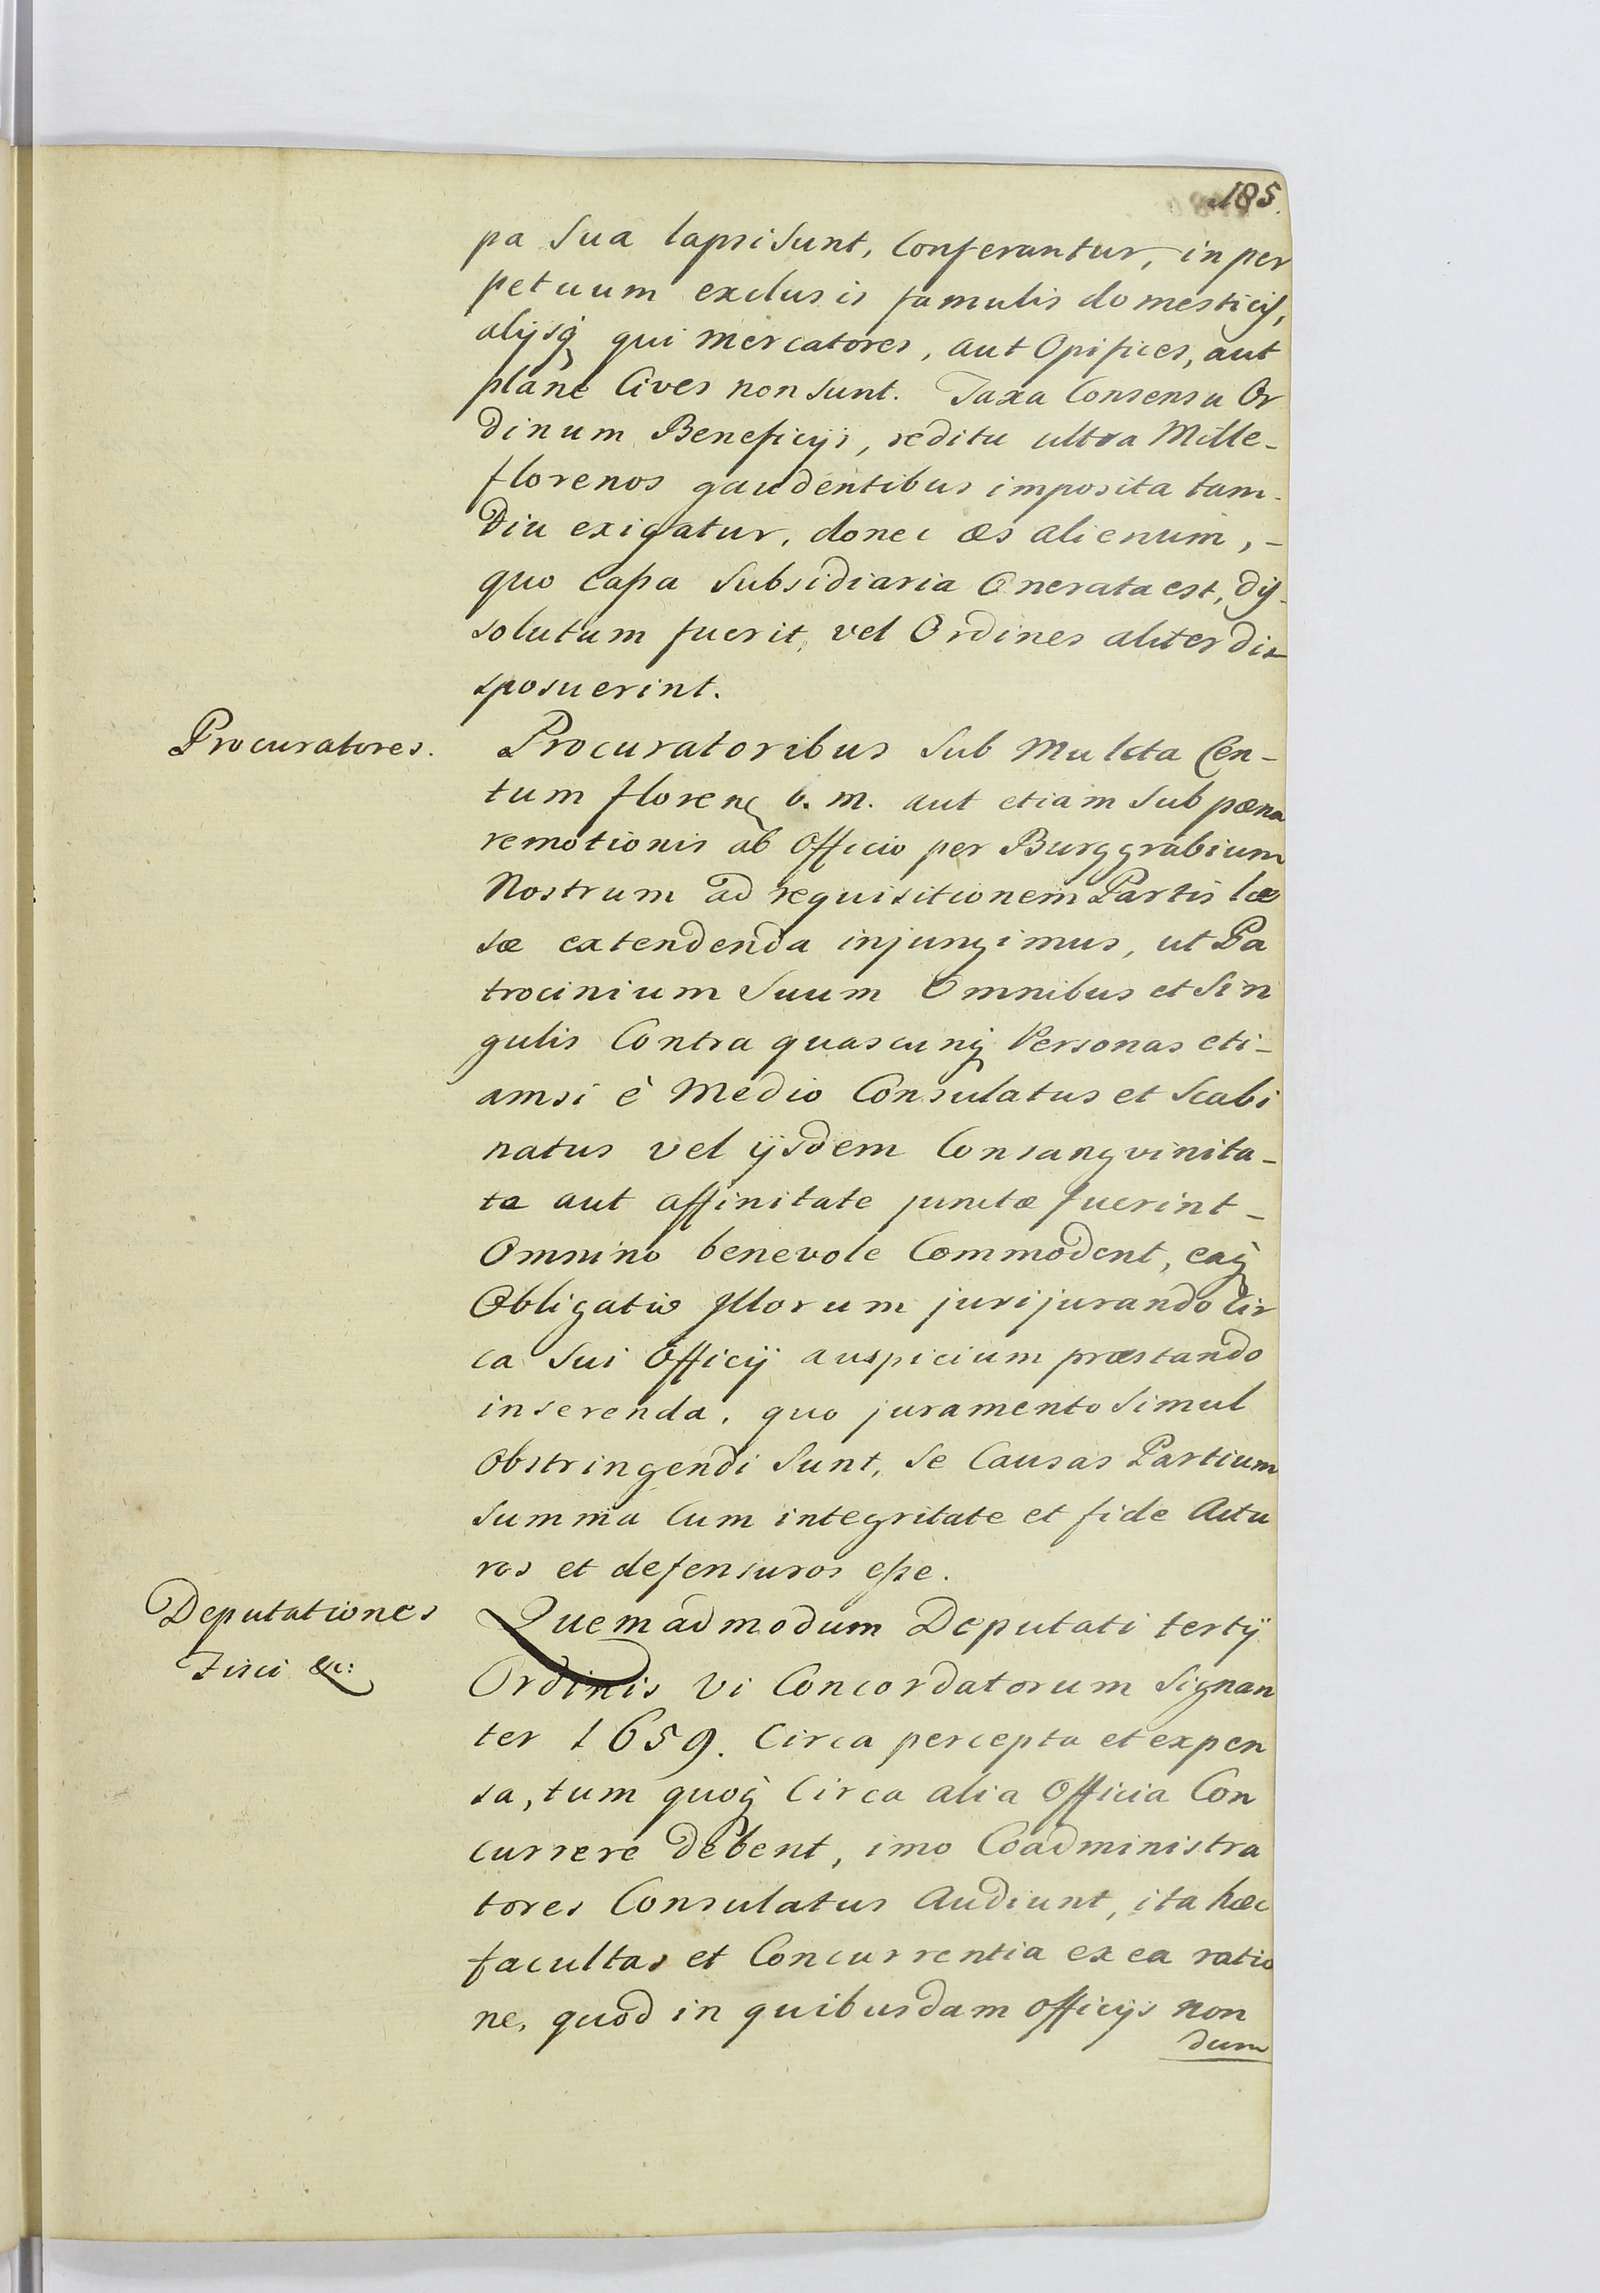 185.
pa Sua lapsi Sunt, Conferantur, in per
petuum exclusis famulis domesticis,
alijsq qui Mercatores, aut Opifices, aut
plane Cives non sunt. Taxa Consensu Or
dinum Beneficijs, reditu ultra Mille-
florenos gaudentibus imposita tam-
Diu exigatur, donec æs alienum, -
quo Cassa Subsidiaria Onerata est, dis-
solutum fuerit, vel Ordines aliter dis-
sposuerint.
Procuratores.
Procuratoribus Sub Mulcta Cen-
tum floren b. m. aut etiam Sub pœna
remotionis ab Officio per Burggrabium
Nostrum ad requisitionem Partis læ
sæ extendenda injungimus, ut Pa
trocinium Suum Omnibus et Sin
gulis Contra quascunq Personas eti-
amsi è Medio Consulatus et Scabi
natus vel ijsdem Consangvinita-
te aut affinitate junctæ fuerint -
Omnino benevole Commodent, eaq
Obligatio Illorum jurijurando Cir
ca Sui Officij auspicium præstando
inserenda, quo juramento Simul
Obstringendi Sunt, Se Causas Partium
Summa Cum integritate et fide Actu
ros et defensuros esse.
Deputationes
Fisci &c:
Quemadmodum Deputati tertij
Ordinis vi Concordatorum Signan
ter 1659. Circa percepta et expen
sa, tum quoq Circa alia Officia Con
currere debent, imo Coadministra
tores Consulatus Audiunt, ita hæc
facultas et Concurrentia ex ea ratio
ne, quod in quibusdam officijs non
dum